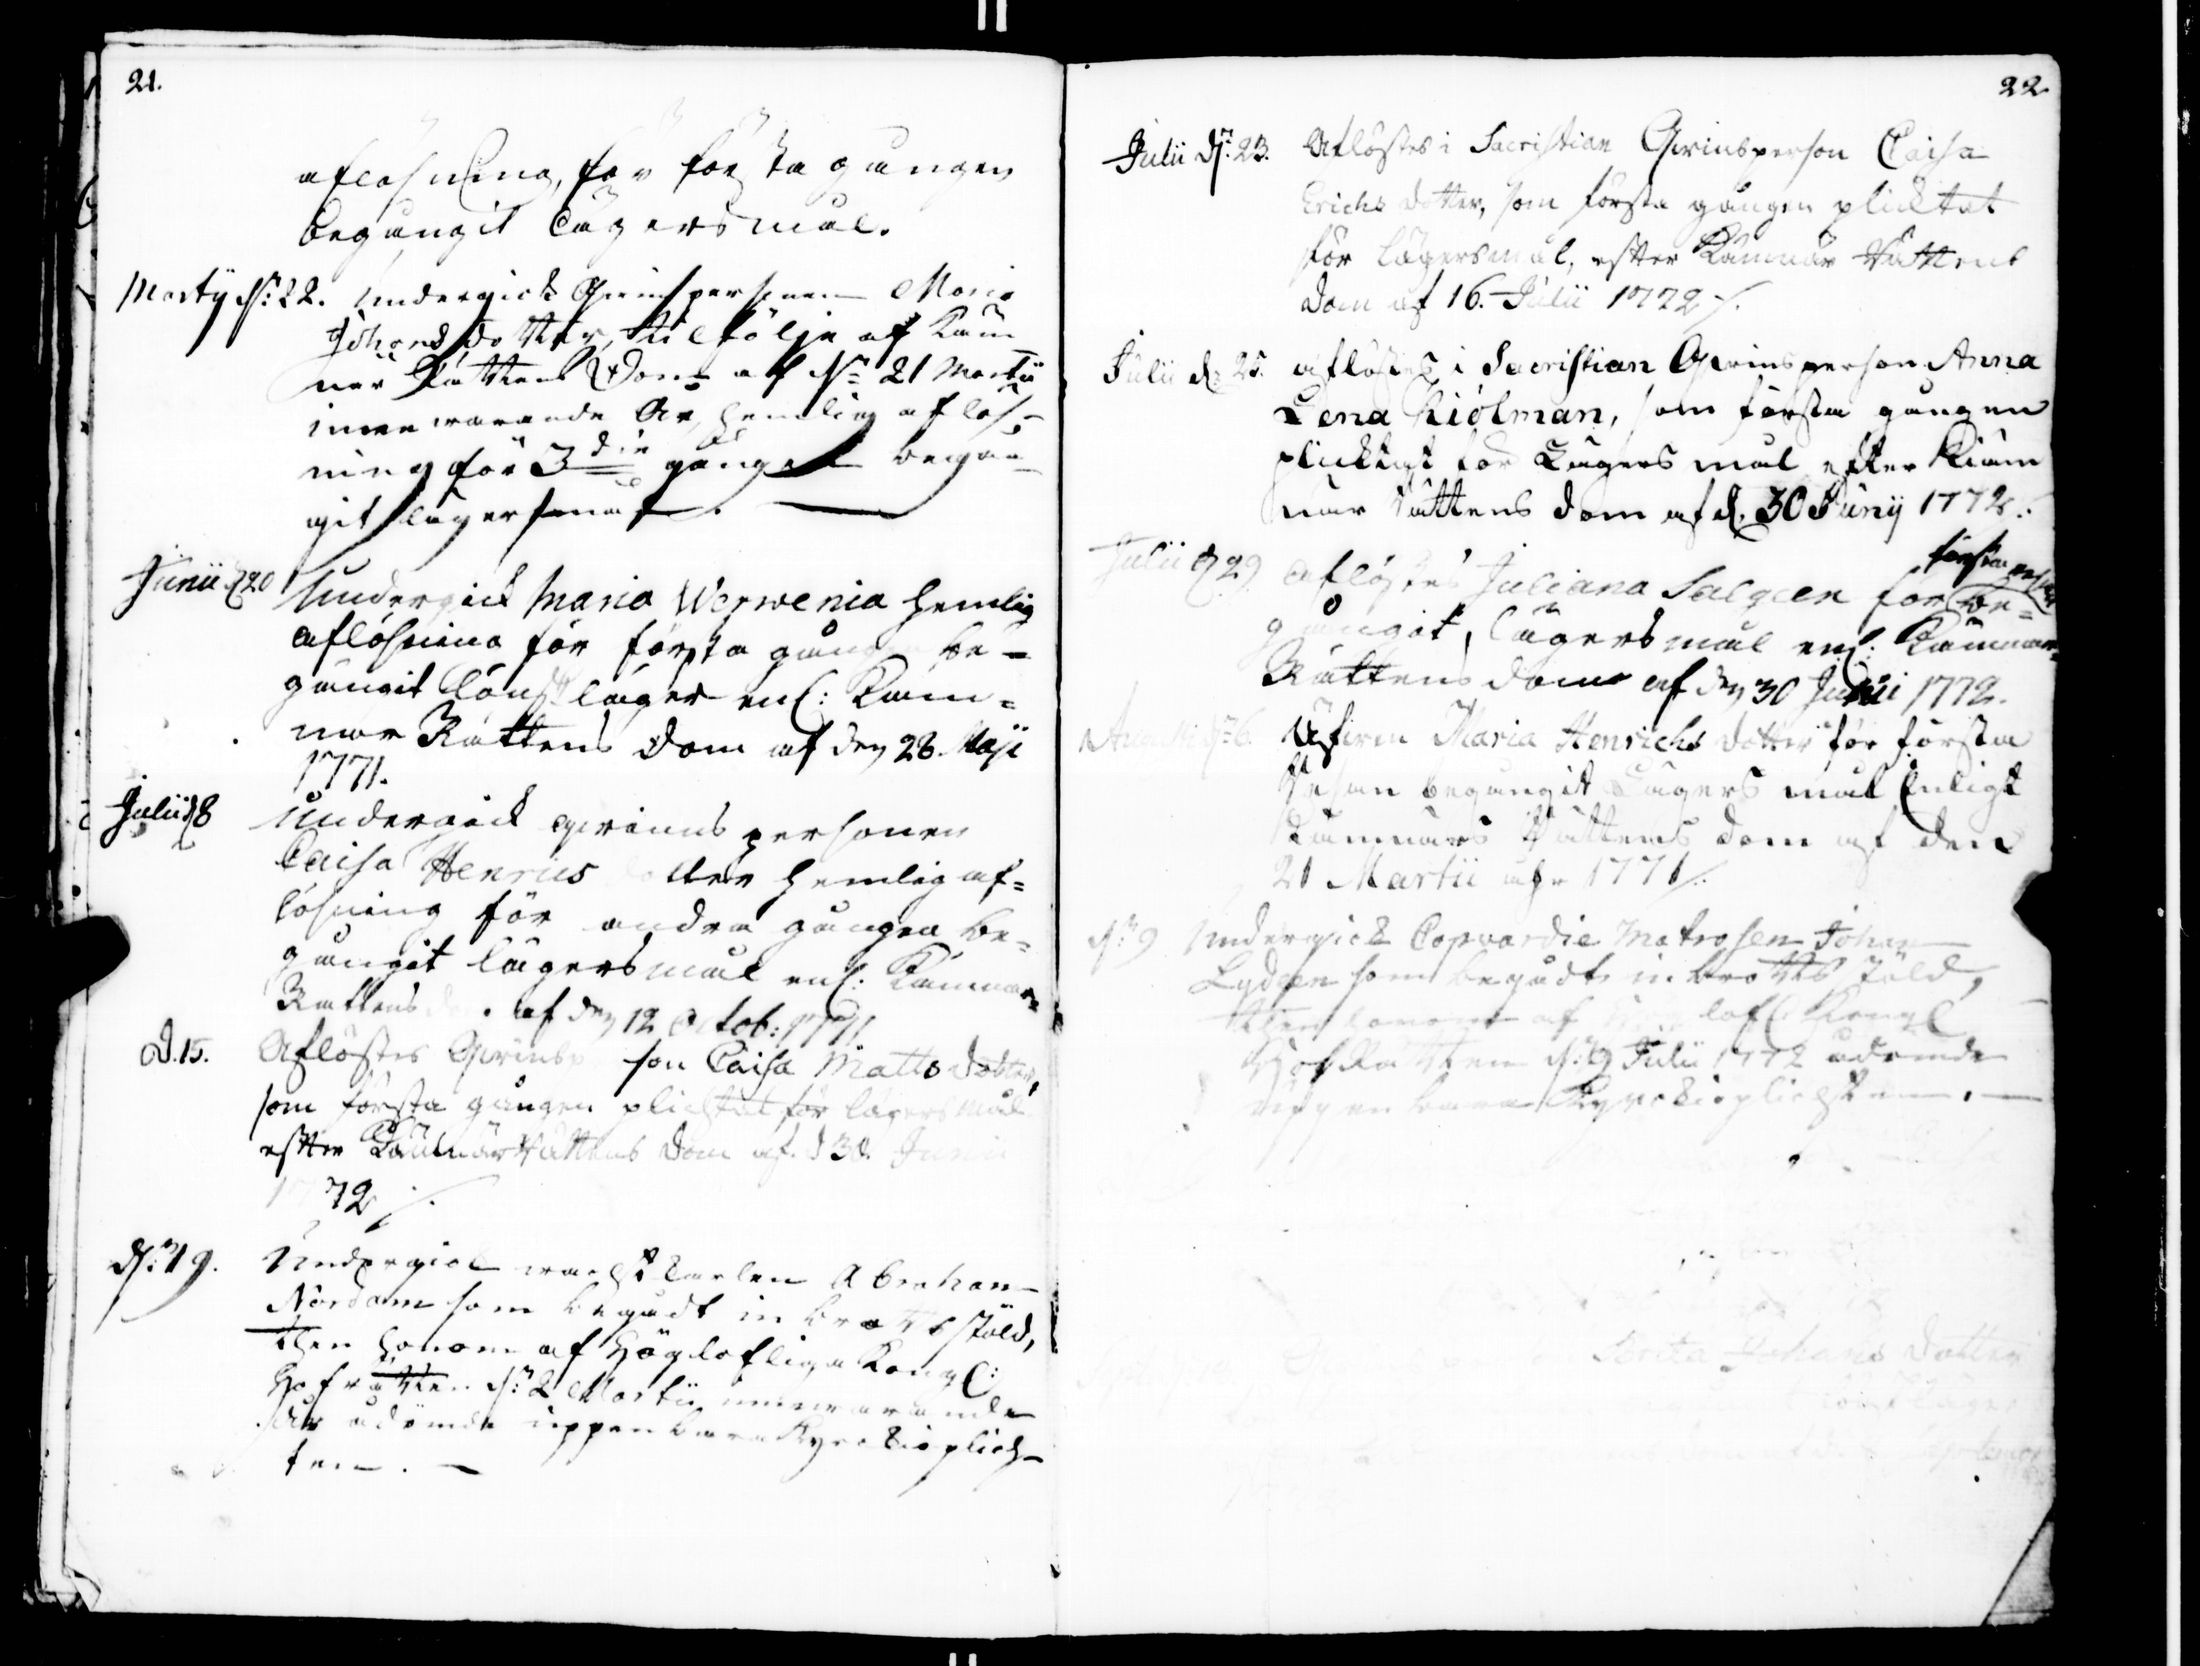 21.
aflösning, för första gången
begångit lägersmål.
Martij d: 22. Undergick Qvinspersonen Maria
Johansdotter, til följe af Käm
ner Rättens Dom af d: 21 Martii
innewarande År, hemlig aflös-
ning för 3die gången begån-
git lägersmål.
Junii d 20 Undergick Maria Werwenia hemlig
aflösning för första gången be-
gångit Lönskläger enl: Käm-
när Rättens dom af den 28. Maji
1771.
Julii d 8 Undergick qvinnspersonen
Caisa Henrics dotter hemlig af-
lösning för andra gången be-
gångit lägersmål enl: Kämnär-
Rättens dom af den 12 Octob: 1771
d. 15. Aflöstes Qvinsperson Caisa Matts dotter,
som första gången plichtat för lägersmål
efter Kämnärs Rättens dom af. d 30. Junii
1772 /.
d: 19. Undergick wachtkarlen Abraham
Nordam som begådt inbrottsstöld,
then honom af Höglofliga Kongl:
Hofrätten d: 2 Martii innewarande
år ådömde uppenbara Kyrckioplich-
ten. -
22.
Julii d: 23. Aflöstes i Sacristian Qvinsperson Caisa
Erichs dotter, som första gången plicktat
för lägersmål, efter Kämnär Rättens
dom af 16. Julii 1772 /.
Julii d: 25. aflöstes i Sacristian Qvinsperson Anna
Lena Kiölman, som första gången
plicktat för Lägersmål efter Kiäm
när Rättens dom af d. 30 Junij 1772.
Julii d 29 aflöstes Juliana Salgeen för första resan be-
gångit, lägersmål enl: Kämnär-
Rättens dom af den 30 Junii 1772.
Augusti d: 6. Maria Henrichs dotter för första
resan begångit Lägersmål Enligt
Kämnärs Rättens dom af den
21 Martii åhr 1771 /.
d: 9 Undergick Copvardie Matrosen Johan
Lydeen som begådt inbrotts stöld,
then honom af Höglofl. Kongl
Hof Rätten d: 9 Julii 1772 ådömde
uppenbara Kyrckioplichten. -
Brita Johans dotter